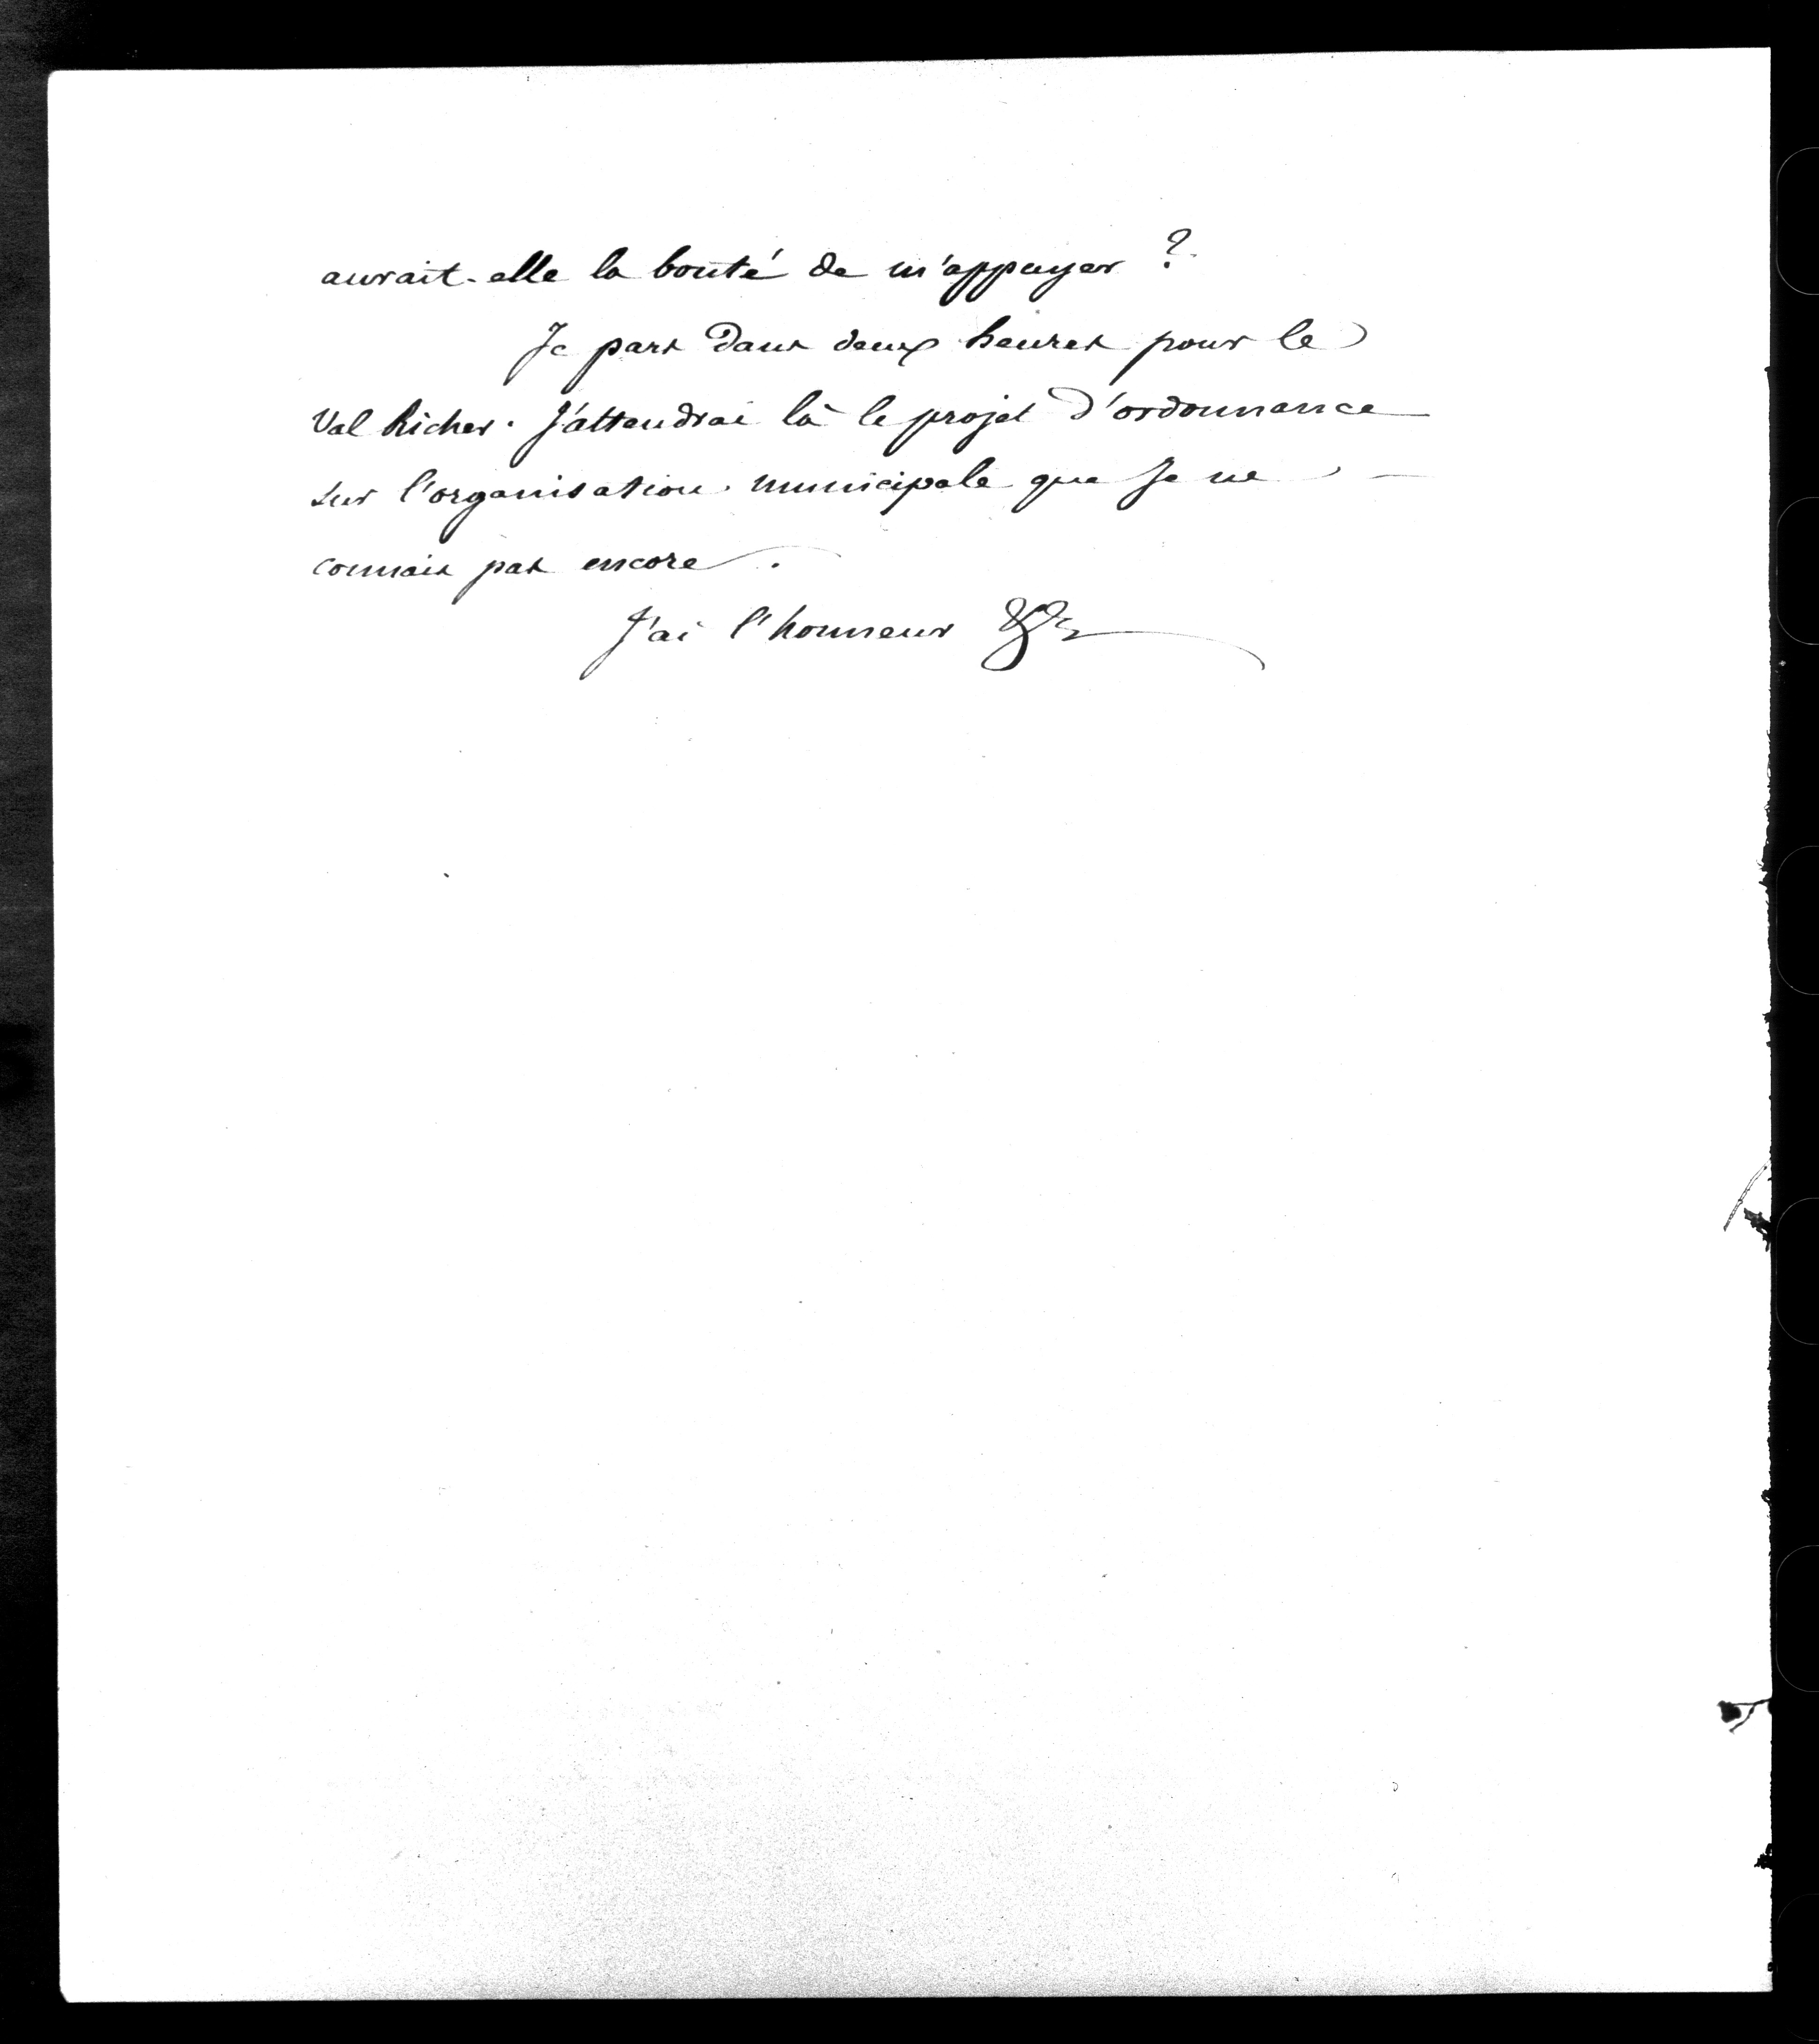 aurait-elle la bonté de m'appuyer ?
Je pars dans deux heures pour le
Val Richer. J'attendrai là le projet d'ordonnance
sur l'organisation municipale que je ne
connais pas encore.
J'ai l'honneur &a